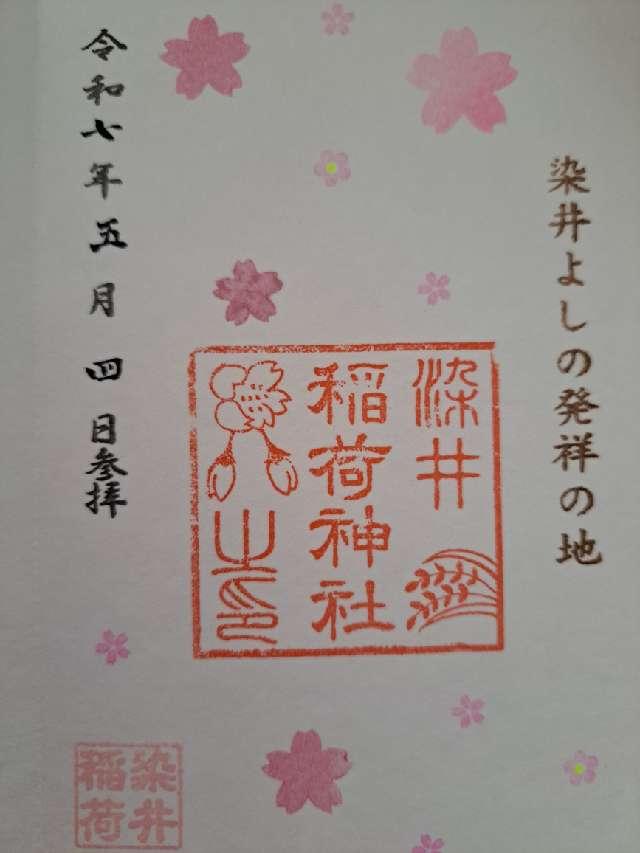 染井よしの発祥の地
染井
稲荷神社
之印
令和七年五月四日参拝
染井
稲荷